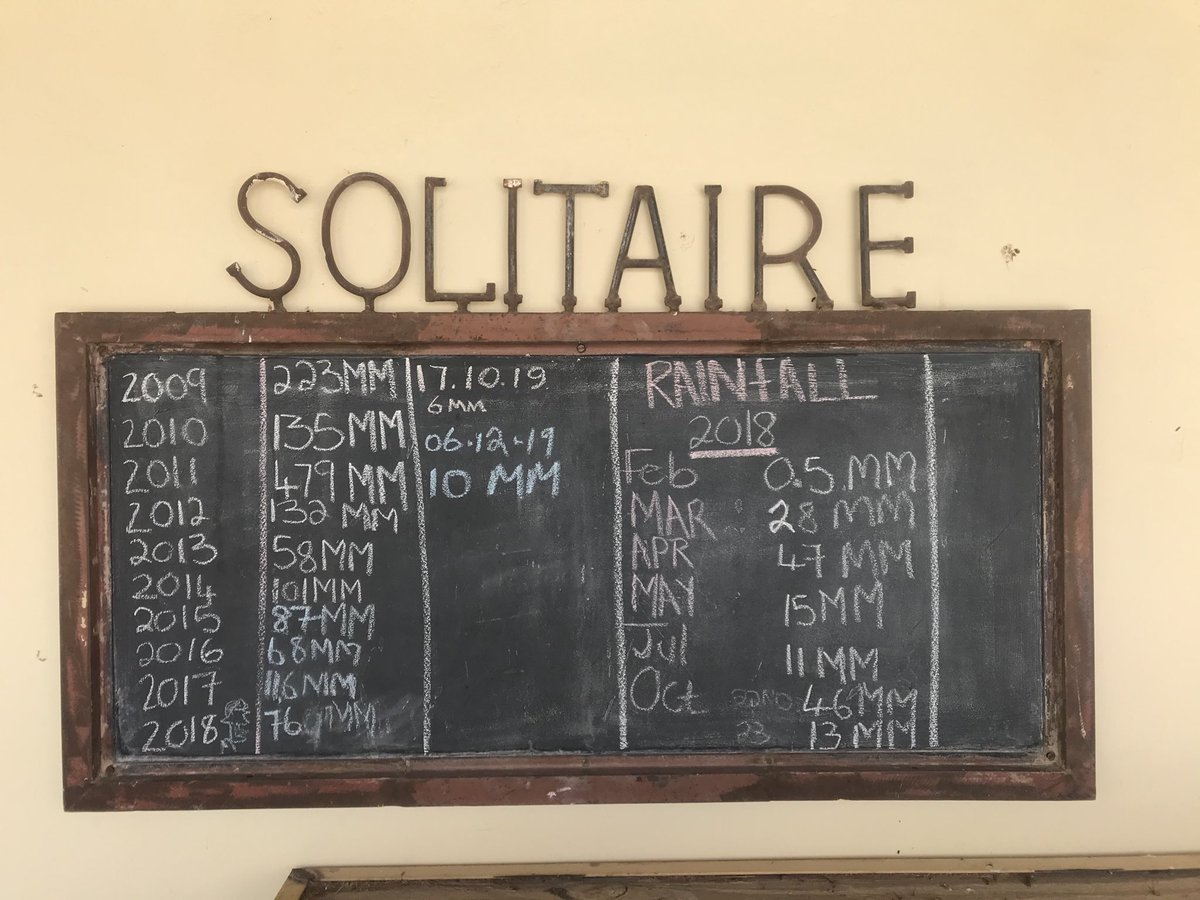 SOLITAIRE
2009 223MM
2010 135MM
2011 479MM
2012 132 MM
2013 58MM
2014 101MM
2015 87MM
2016 68MM
2017 116MM
2018 76 MM
17.10.19
6MM
06.12.19
10 MM
RAINFALL
2018
Feb 0.5 MM
MAR 28 MM
APR 47 MM
MAY 15MM
Jul 11MM
Oct 22ND 46MM
23 13MM